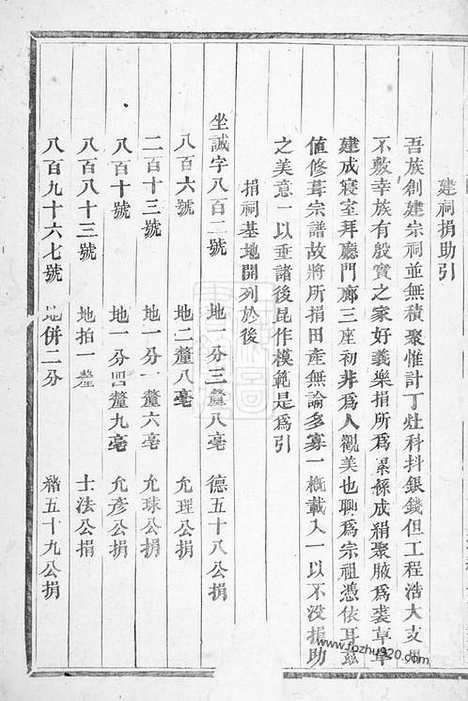 建祠捐助引
吾族創建宗祠並無積聚惟計丁灶科抖銀錢但工程浩大支
不敷幸族有殷實之家好義樂捐所爲累絲成絹聚腋爲裘草草
建成寢室拜廳門廊三座初非爲人觀美也聊爲宗祖憑依耳茲
値修葺宗譜故將所捐田產無論多寡一概載入一以不没捐助
之美意一以垂諸後昆作模範是爲引
捐祠基地開列於後
坐誠字八百二號 地一分三釐八毫 德五十八公捐
八百六號 地二釐八毫 允理公捐
二百十三號 地一分一釐六毫 允球公捐
八百十號 地一分四釐九毫 允彥公捐
八百八十三號 地拍一釐 士法公捐
八百九十六七號 地併二分 五十九公捐
www.fozhu920.com